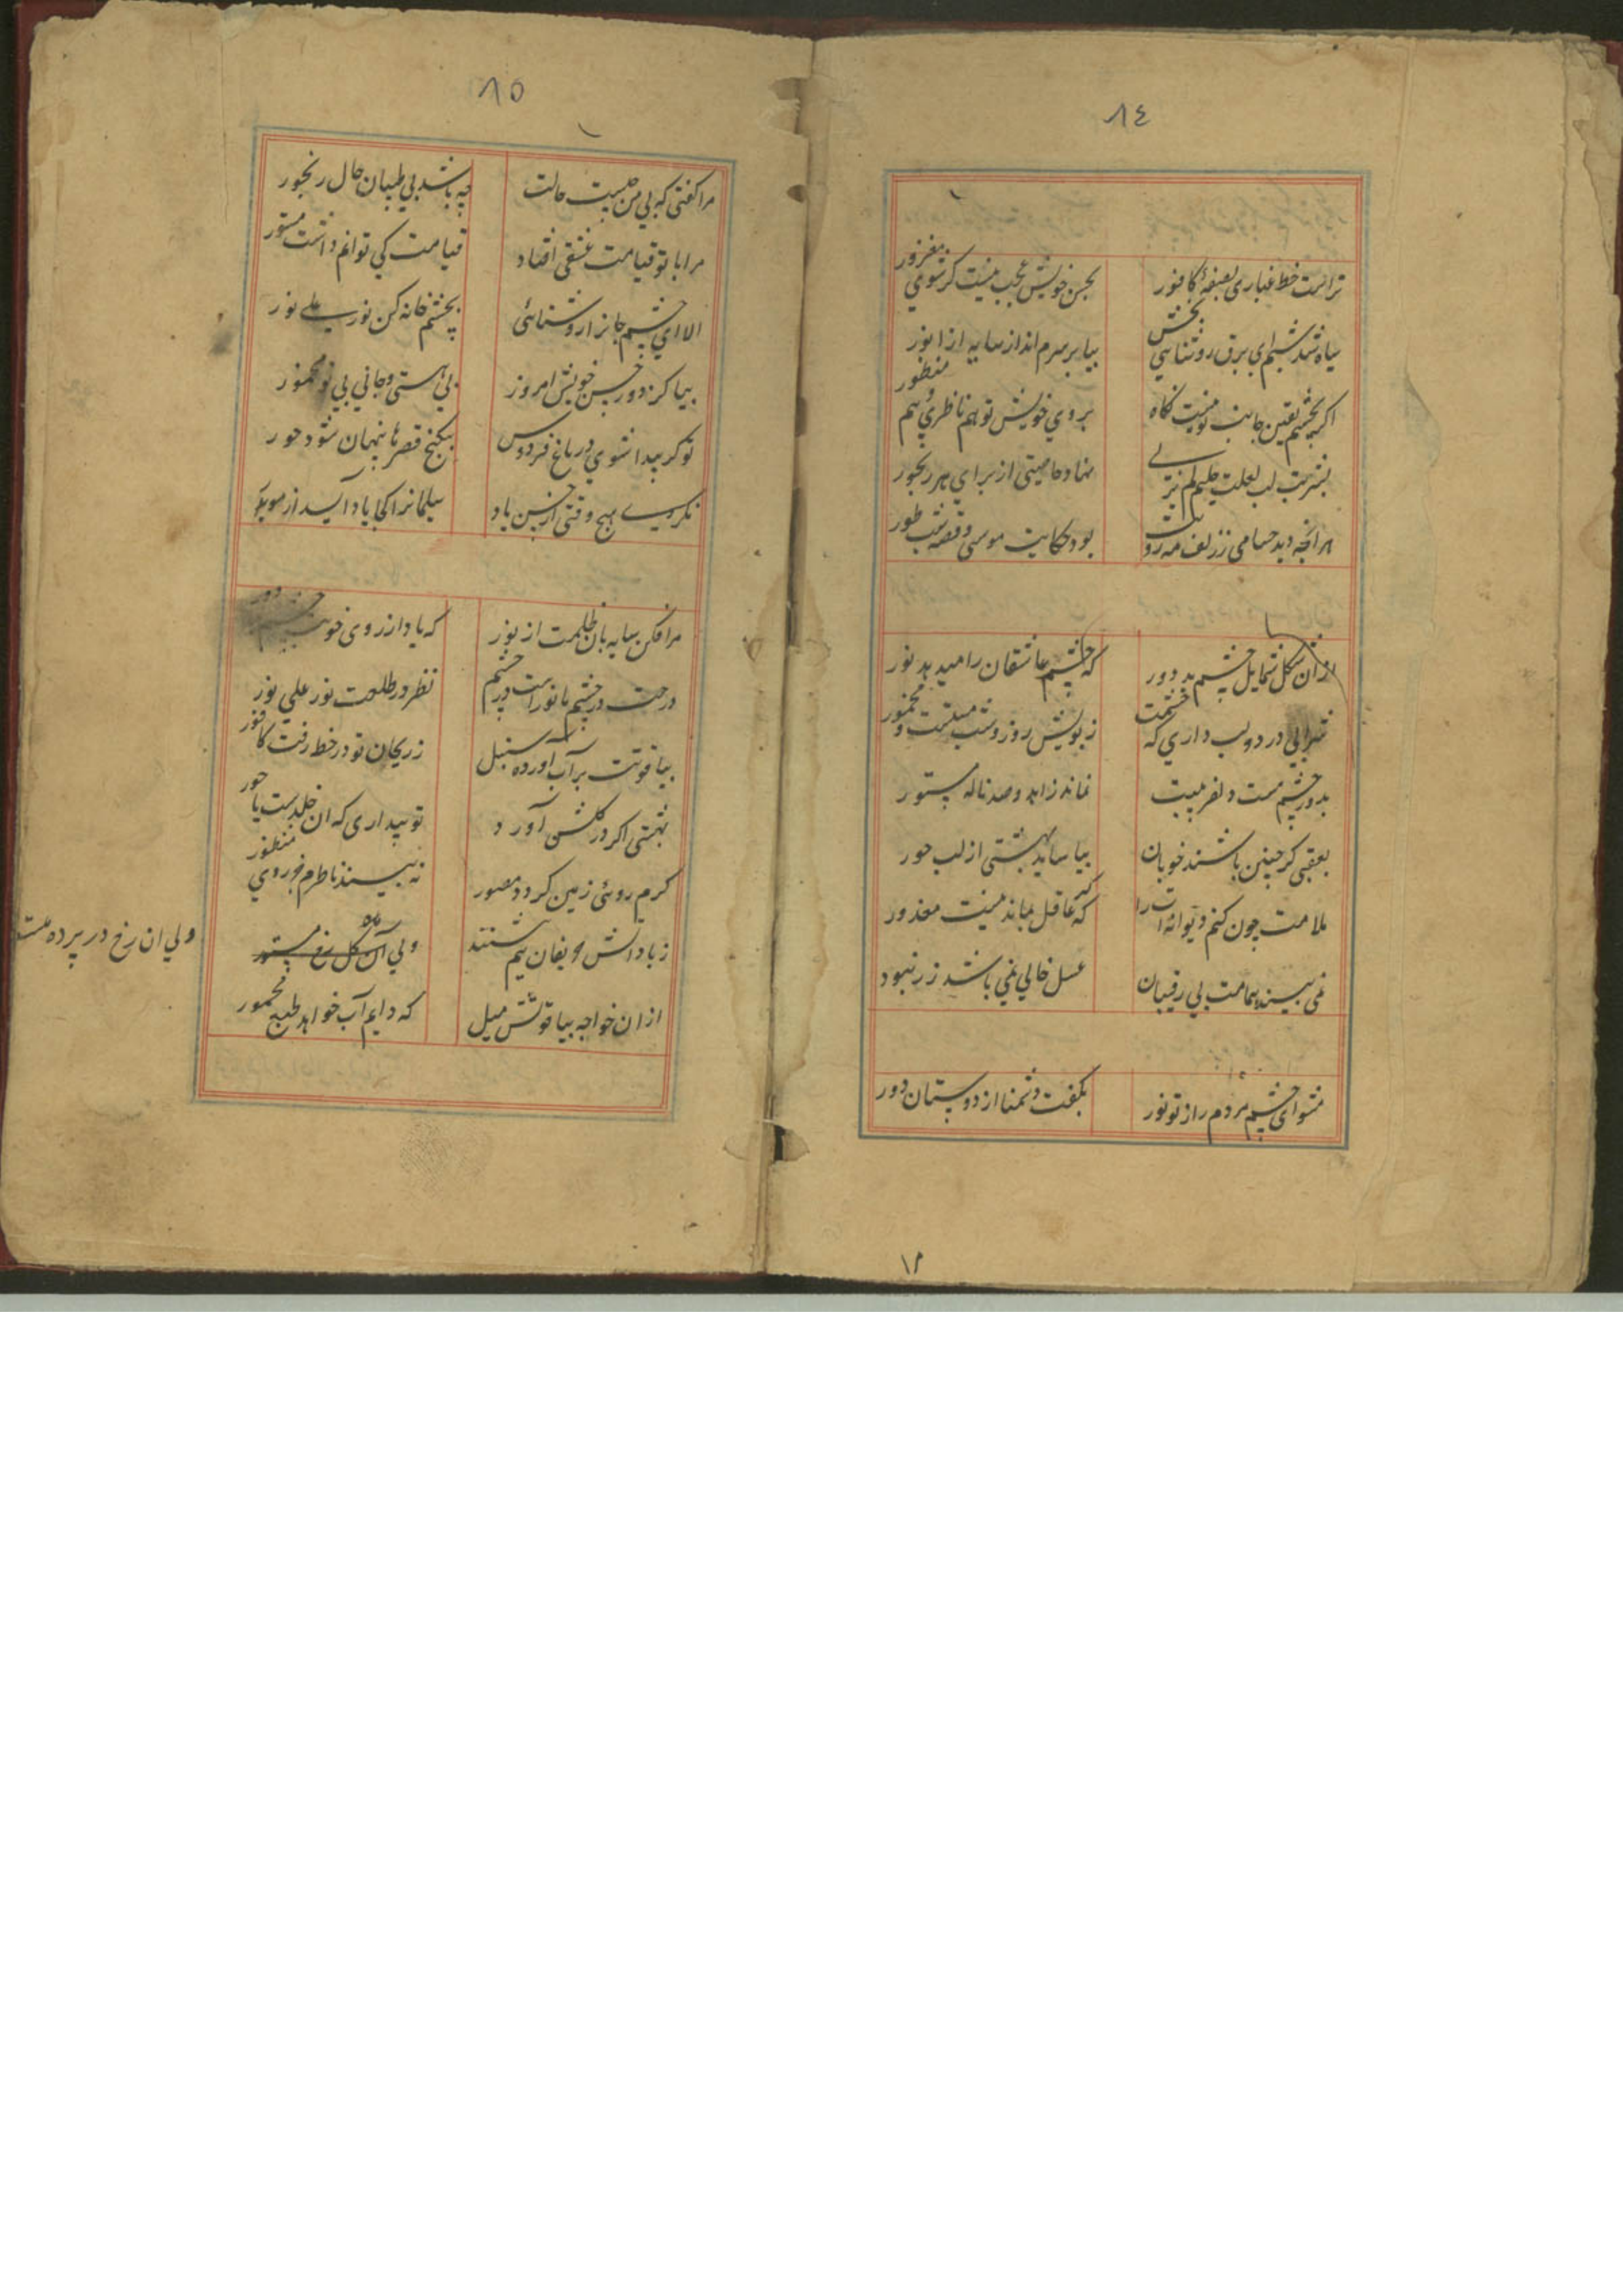 ٨٤
تراست خط غباری بصفحهٔ کافور
بحسن خویش عجب نیست کر شوی مغرور
سیاه شد شبم ای برق روشنایی بخش
بیا بر سرم انداز سایه از انور
اکر بچشم یقین جانب تو نیست نکاه
بروی خویش تو هم ناظری و هم منظور
بشربت لب لعلت
نهاد خاصیتی از برای هر رنجور
هر انچه دید حسامی ز زلف مه رویت
بود حکایت موسی و قصه شب طور
از ان شکل شمایل چشم بد دور
که چشم عاشقان را میدهد نور
شرابی در دو لب داری که چشمت
ز بویش روز و شب مستست و مخمور
بدور چشم مست دلفریبت
نماند زاهد و صد ناله مستور
بعقبی کر چنین باشند خوبان
بیاساید بهشتی از لب حور
ملامت چون کنم دیوانه ات را
که عاقل نیست معذور
نمی بیند همامت بی رقیبان
عسل خالی نمی باشد ز زنبور
مشو ای چشم مردم را ز تو نور
بکفت دشمنا از دوستان دور
٨٥
مرا کفتی که بی من چیست حالت
چه باشد بی طبیبان حال رنجور
مرا با تو قیامت عشقی افتاد
قیامت کی توانم داشت مستور
الا ای چشم جانرا روشنائی
بچشم خانه کن نور علی نور
بیا کز دور حسن خویش امروز
بی هستی و جانی بی تو مخمور
تو کر پیدا شوی در باغ فردوس
بکنج قصرها پنهان شود حور
نکردی هیچ وقتی از حسن یاد
سلیمانرا کجا یاد آید از مور
مرا فکن سایه بان ظلمت از نور
که بادا از روی خوبت چشم بد دور
درخت در چشم ما نور است در چشم
نظر در طلعتت نور علی نور
بیاقوتت بر آب آورده سنبل
ز ریحان تو در خط رفت کافور
بهشتی اکر در کلشن آورد
تو پنداری که ان خلدست یا حور
کرم روئی زمین کردد مصور
نه بیند ناظرم جز روی منظور
ز باد اتش حریفان نیم شستند
ولی آن کل رخ مستور
ولی ان رخ در پرده مستور
از ان خواجه بیاقوتش میل
که دایم آب خواهد طبع مخمور